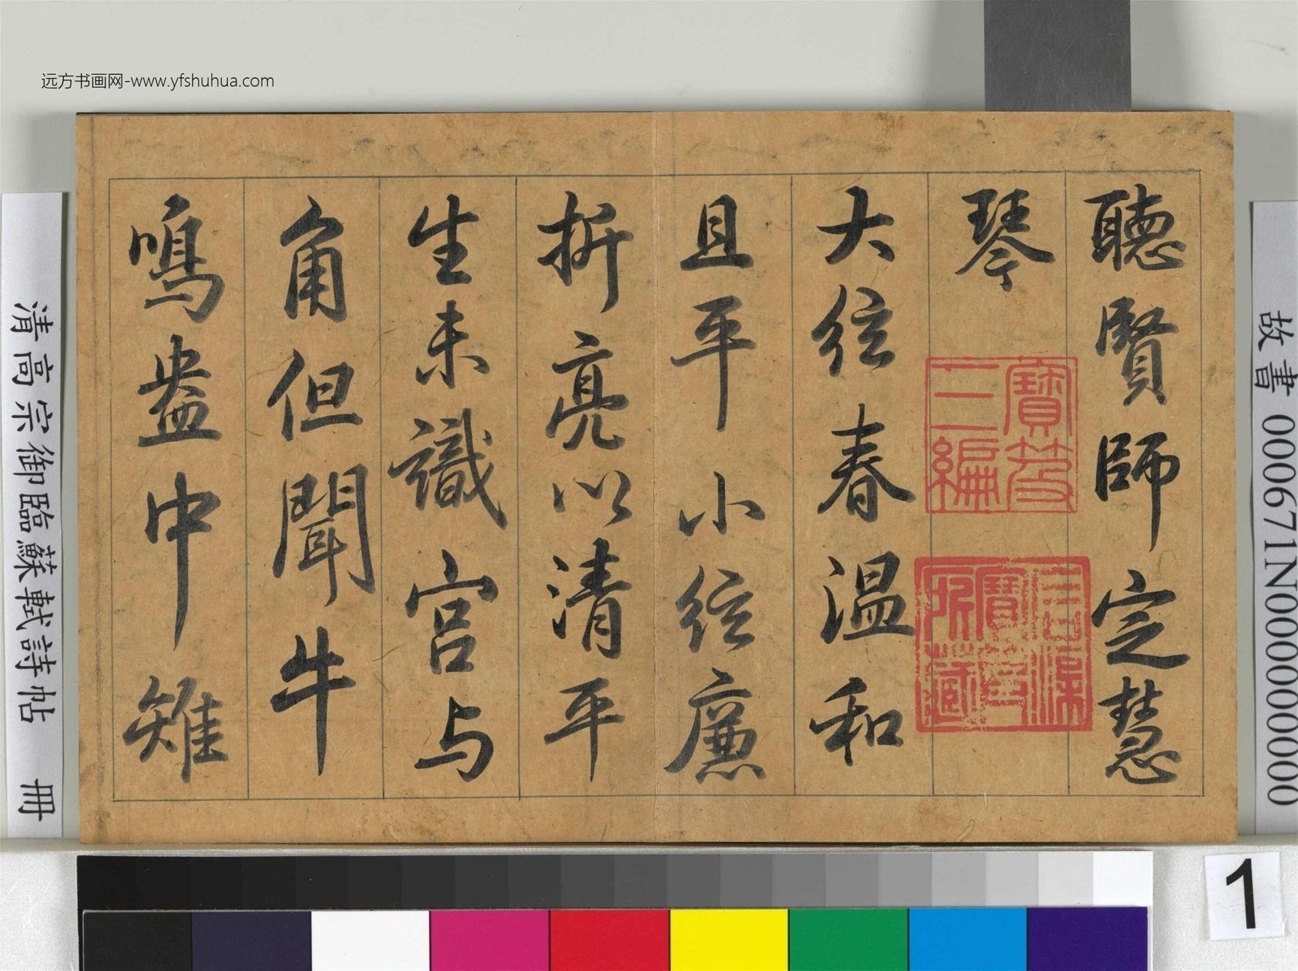 远方书画网-www.yfshuhua.com
聽賢師定慧
琴
大弦春温和
且平小弦廉
折亮以清平
生未識宫与
角但聞牛
鳴盎中雉
寶笈
三編
清高宗御臨蘇軾詩帖 冊
故書 000671N000000000
1